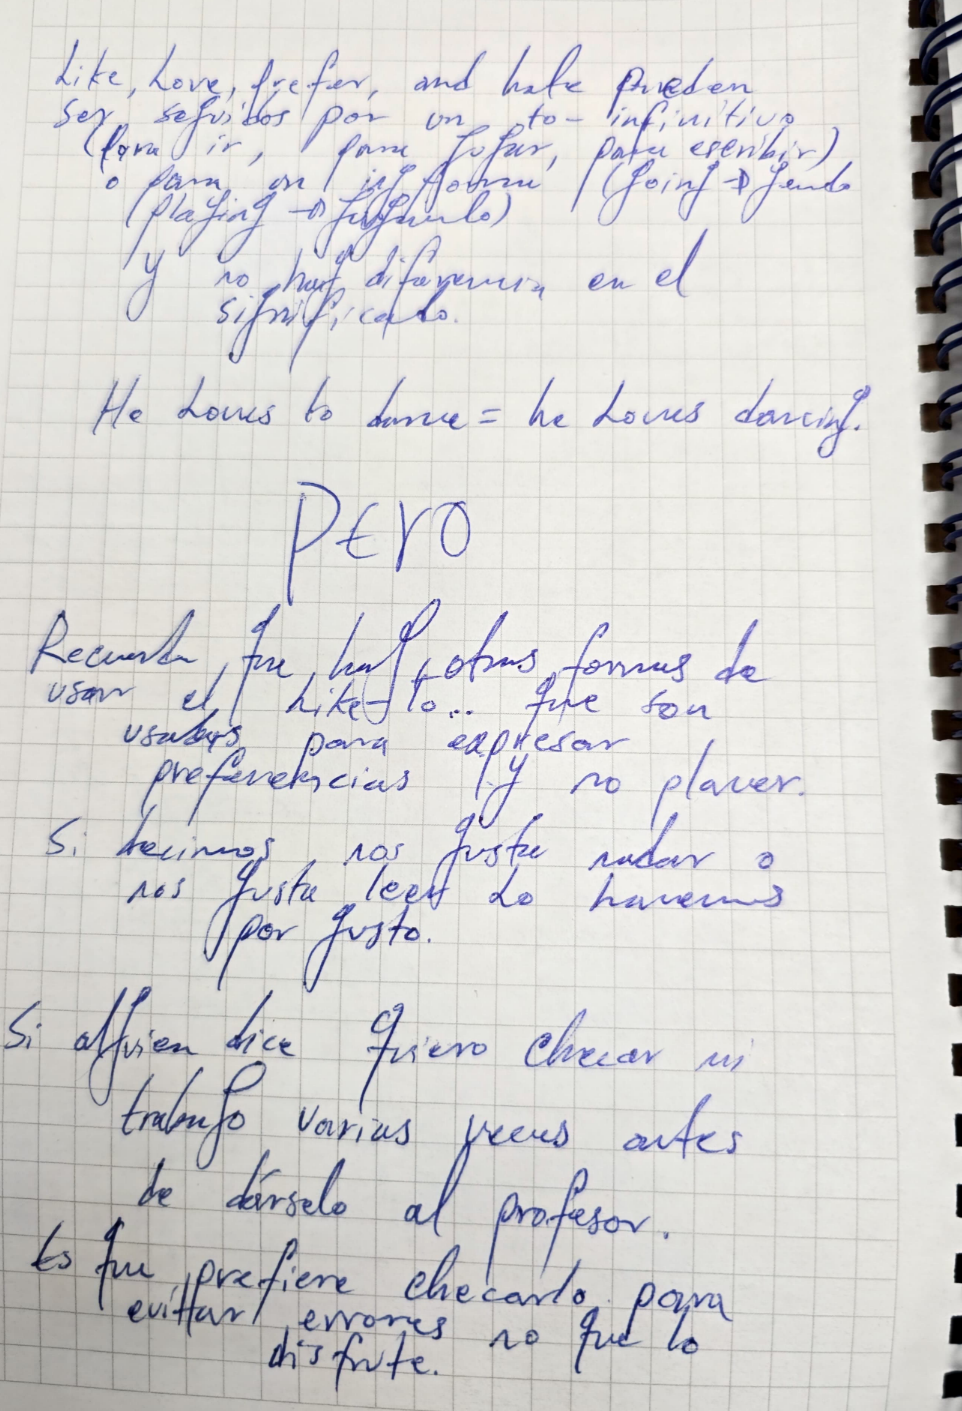 Like, Love, prefer, and hate pueden
ser seguidos por un to-infinitivo
(para ir, para jugar, para escribir)
o para un ing forma (going → yendo
(playing → jugando)
y no hay diferencia en el
significado.
He Loves to dance = he Loves dancing.
PERO
Recuerda que hay otras formas de
usar el Like-to.. que son
usadas para expresar
preferencias y no placer.
Si decimos nos gusta nadar o
nos gusta leer Lo hacemos
por gusto.
Si alguien dice quiero checar mi
trabajo varias veces antes
de dárselo al profesor.
Es que prefiere checarlo para
evittar errores no que lo
disfrute.